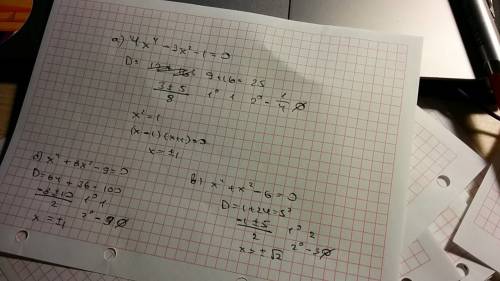 а) 4x⁴ - 3x² - 1 = 0
D = 9 + 16 = 25
3 ± 5 / 8 1° 1 2° - 1/4 ∅
x² = 1
(x - 1)(x + 1) = 0
x = ±1
б) x⁴ + 8x² - 9 = 0
D = 64 + 36 = 100
-8 ± 10 / 2 1° 1
x = ±1 2° - 9 ∅
в) x⁴ + x² - 6 = 0
D = 1 + 24 = 5²
-1 ± 5 / 2 1° 2
x = ±√2 2° - 3 ∅